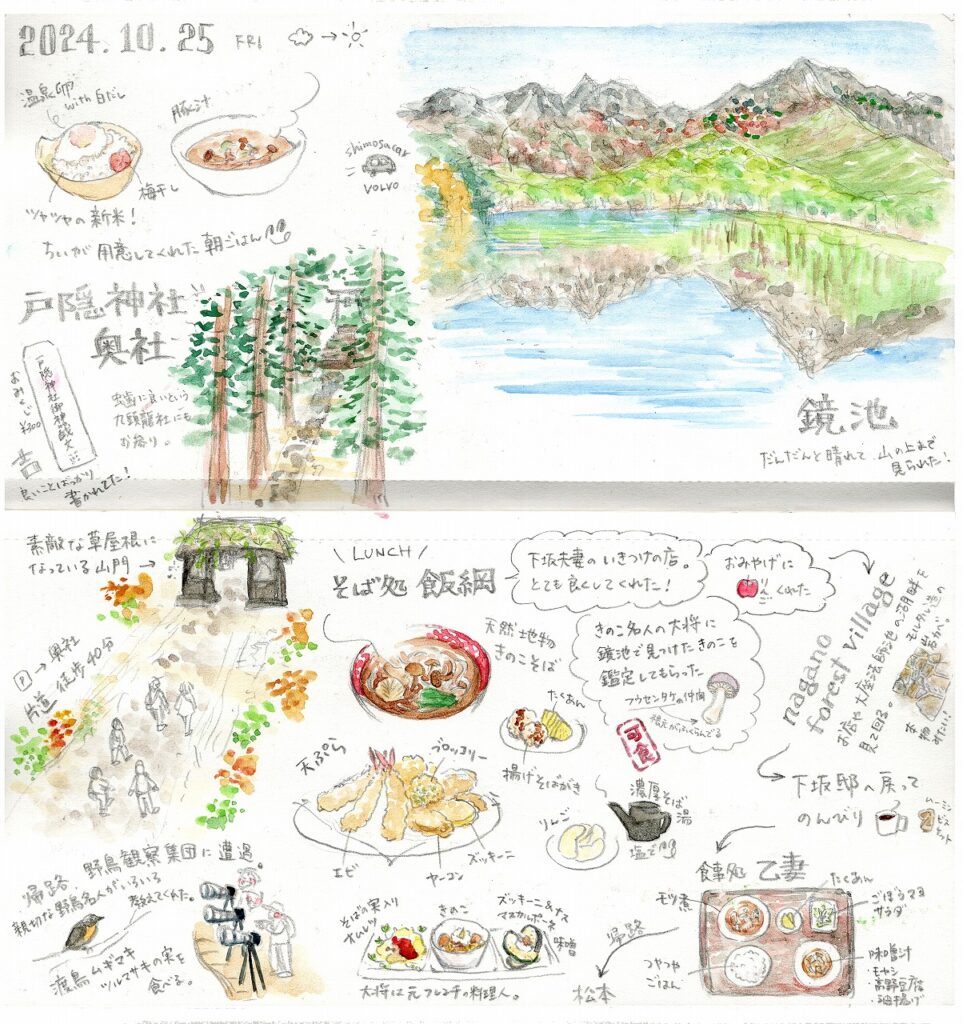 2024.10.25 FRI
温泉卵
with 白だし
豚汁
梅干し
ツヤツヤの新米！
ちいが用意してくれた朝ごはん
shimosacar
VOLVO
鏡池
だんだんと晴れて山の上まで
見られた！
戸隠神社
奥社
戸隠神社御神籤文
おみくじ
¥300
良いことばっかり
書かれてた！
虫歯に良いという
九頭龍社にも
お参り。
素敵な草屋根に
なっている山門→
P→奥社
片道 徒歩40分
\ LUNCH /
そば処 飯綱
下坂夫妻のいきつけの店。
とても良くしてくれた！
おみやげに
りんごくれた
天然地物
きのこそば
きのこ名人の大将に
鏡池で見つけたきのこを
鑑定してもらった
フウセンタケの仲間
根元がふくらんでる
可食
たくあん
揚げそばがき
天ぷら
ブロッコリー
エビ
ヤーコン
ズッキーニ
濃厚そば
湯
塩で
りんご
nagano
forest village
お店や大座法師池の湖畔を
見て回る。
モルタル造の
下坂邸へ戻って
のんびり
ムーミン
ビスケット
帰路 野鳥観察集団に遭遇。
親切な野鳥名人がいろいろ
教えてくれた。
渡鳥 ムギマキ
ツルマサキの実を
食べる。
そばの実入り
オムレツ
きのこ
ズッキーニ&ナス
マスカルポーネ
味噌
大将は元フレンチの料理人。
帰路
松本
食事処 乙妻
モツ煮
たくあん
ごぼうマヨ
サラダ
つやつや
ごはん
味噌汁
・モヤシ
・高野豆腐
・油揚げ